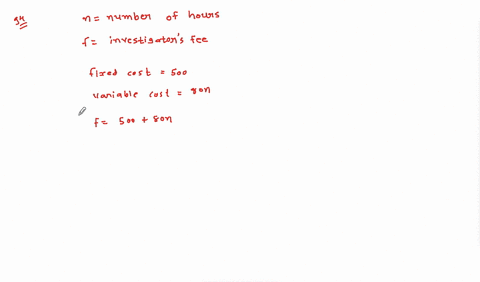 34
n = number of hours
f = investigator's fee
fixed cost = 500
variable cost = 80n
f = 500 + 80n